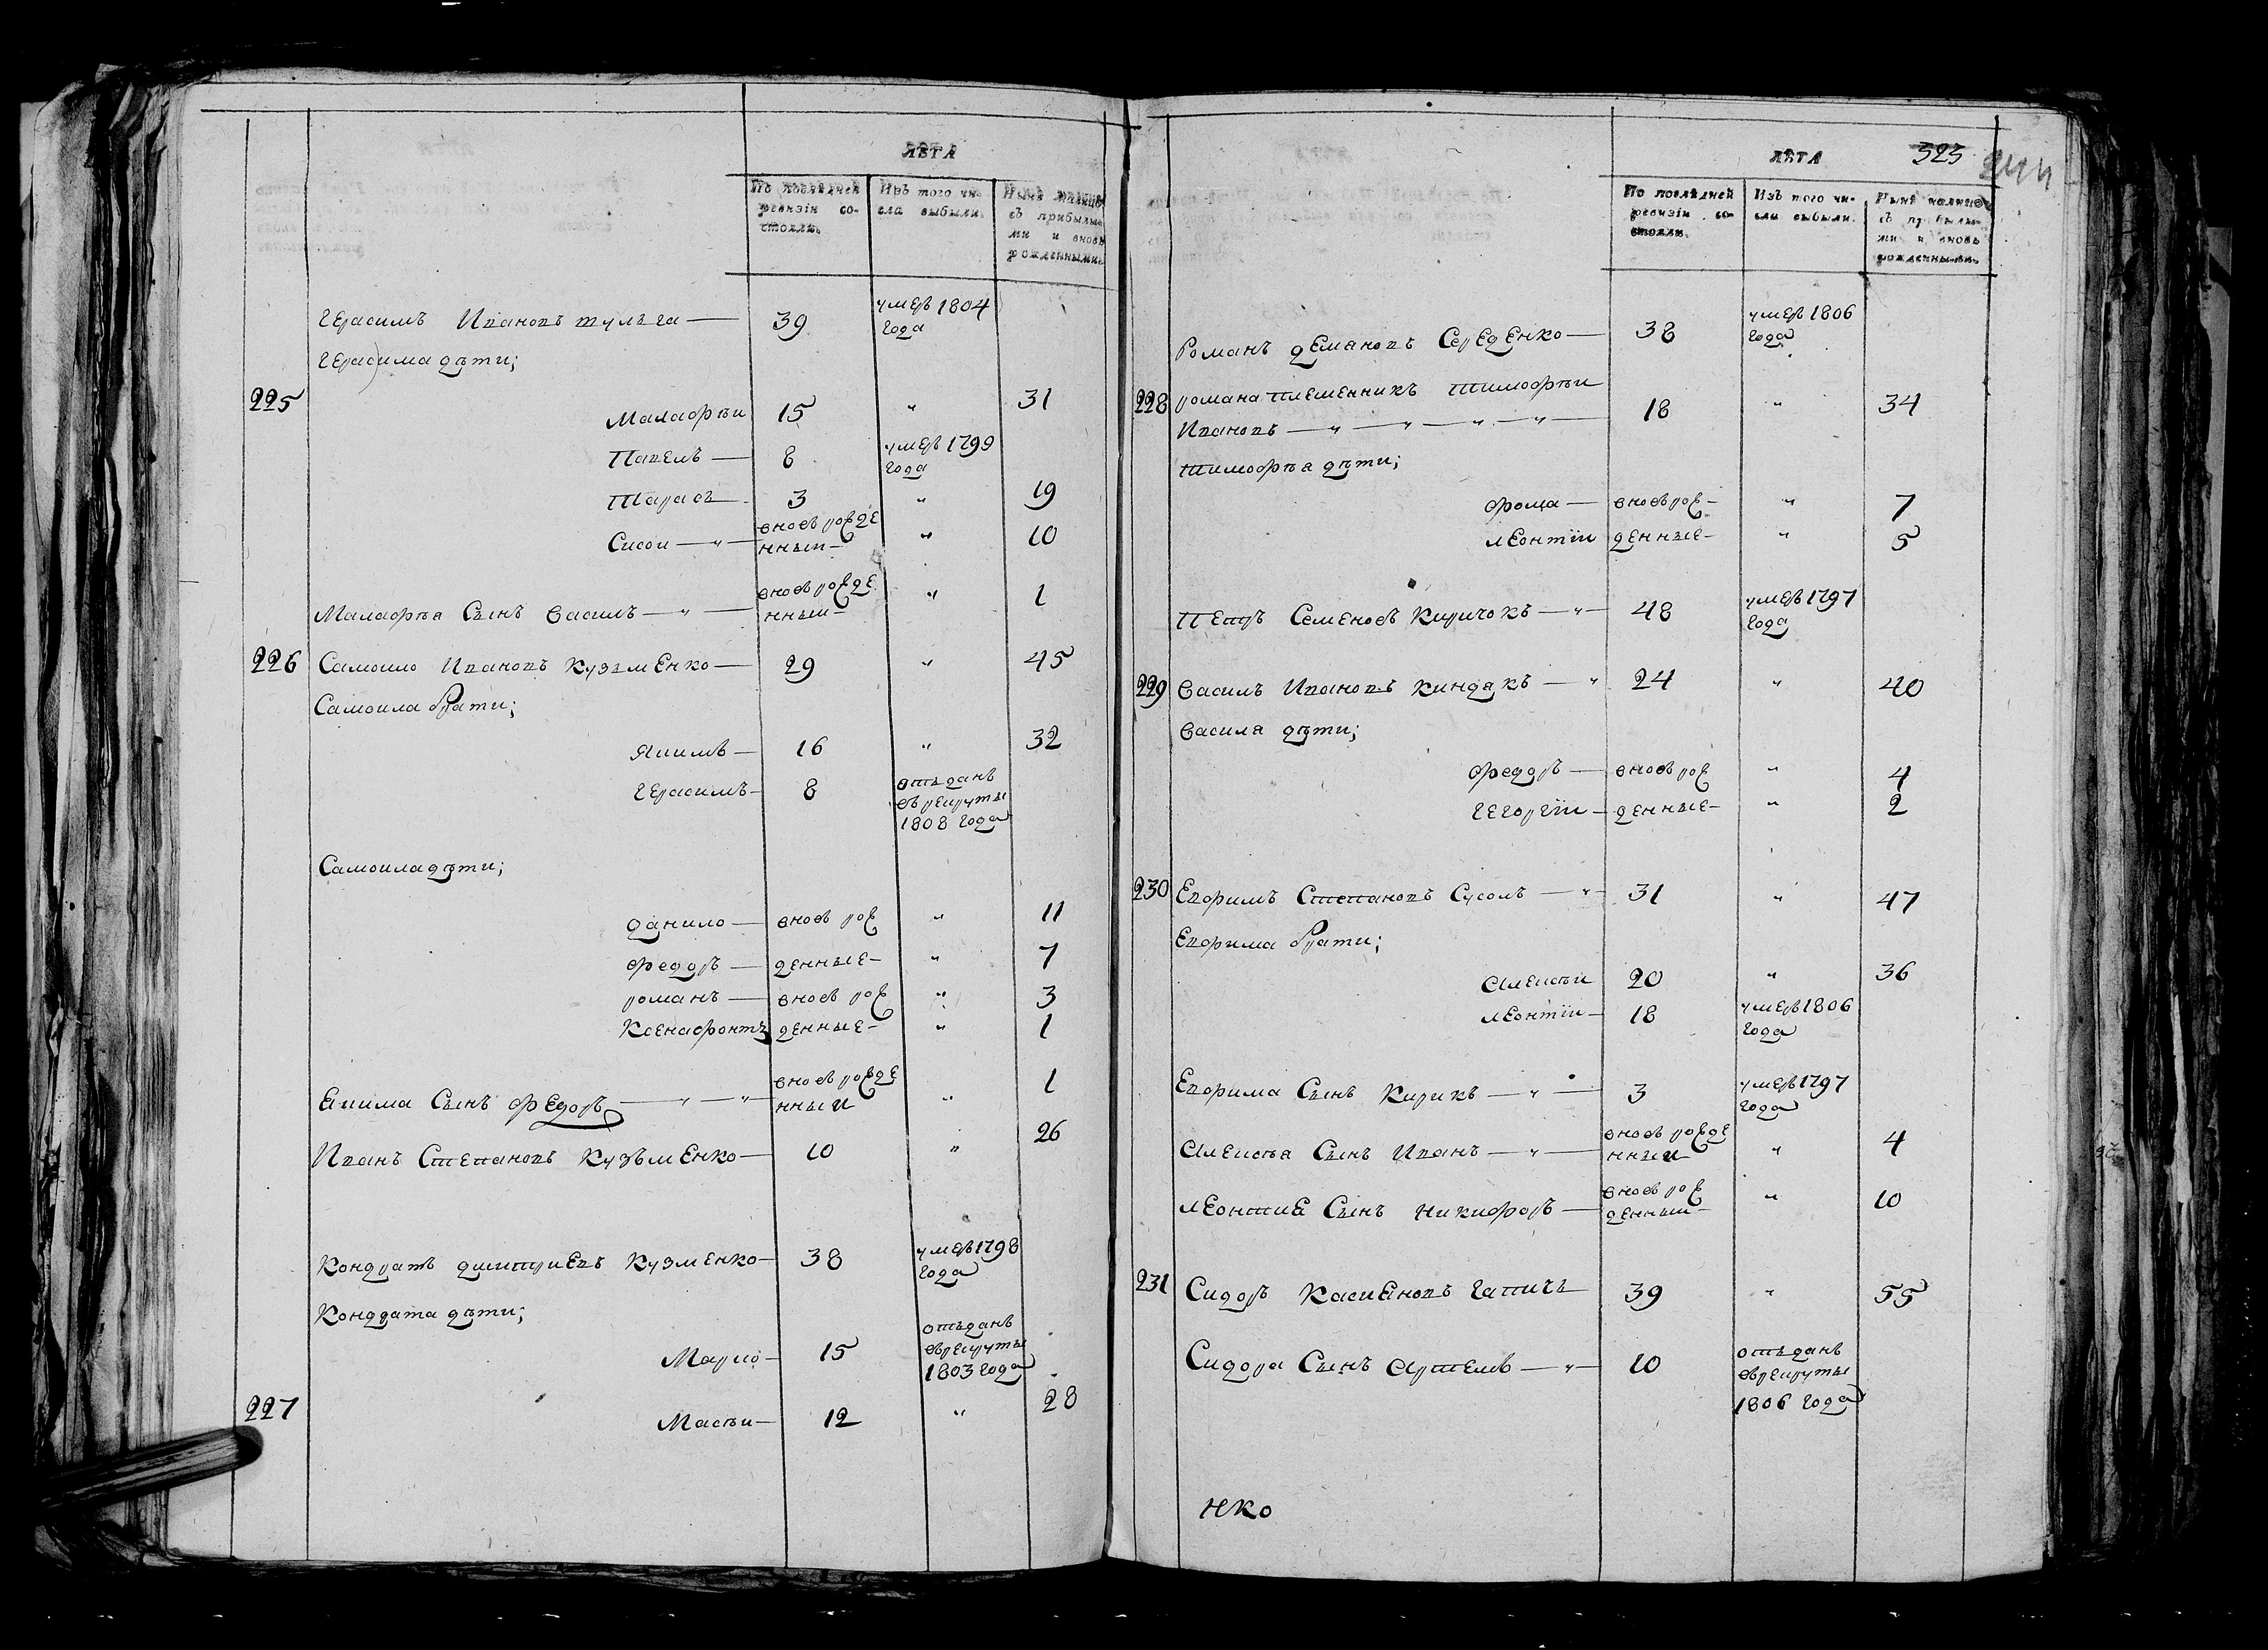 ЛѢТА
По послѣдней ревизіи со-
стояли.
Изъ того чи-
сла выбыли.
Нынѣ налицо
съ прибылы-
ми и вновь
рожденными.
Герасимъ Ивановъ 39 умеръ 1804
года
Герасима дѣти;
225 Малафѣи 15 " 31
Павелъ — 8 умеръ 1799
года
Тарасъ — 3 " 19
Сисои — " — вновь рожде
нныи — " 10
Малафѣа Сынъ Василъ — " — вновь рожде
нныи — " 1
226 Самоило Ивановъ Кузьменко — 29 " 45
Самоила братѝ;
Якимъ — 16 " 32
Герасимъ — 8 отъданъ
въ рекруты
1808 года
Самоила дѣти;
данило — вновь рож " 11
федоръ — денные — " 7
романъ — вновь рож " 3
Ксенафонтъ денные — " 1
Екима Сынъ федоръ — " — " — вновь рожде
нныи " 1
Иванъ Степановъ Кузьменко — 10 " 26
Кондратъ дмитриевъ Кузменко — 38 умеръ 1798
года
Кондрата дѣти;
Марко — 15 отъданъ
въ рекруты
1803 года
227 Масѣи — 12 " 28
ЛѢТА 323 244
По послѣдней
ревизіи со-
стояли.
Изъ того чи-
сла выбыли.
Нынѣ налицо
съ прибылы-
ми и вновь
рожденными.
Романъ демяновъ Середенко — 38 умеръ 1806
года
228 романа племенникъ Тимофѣи
Ивановъ — " — " — " — " — 18 " 34
Тимофѣа дѣти;
фома — вновь рож — " 7
леонтіи денные — " 5
Петръ Семеновъ Киричокъ — " — 48 умеръ 1797
года
229 Василъ Ивановъ киндакъ — " 24 " 40
Василя дѣти;
федоръ — вновь рож " 4
гегоргіи — денные — " 2
230 Евфимъ Степановъ Сусолъ — " — 31 " 47
Евфима брати;
Алексѣи 20 " 36
леонтіи — 18 умеръ 1806
года
Евфима Сынъ Кирикъ — " — 3 умеръ 1797
года
Алексѣа Сынъ Иванъ — " — вновь рожде
нныи " 4
леонтиа Сынъ никифоръ — вновь рож
денныи — " 10
231 Сидоръ Касиановъ Гапичъ 39 " 55
Сидора Сынъ Артемъ — " — 10 отъданъ
въ рекруты
1806 года
нко